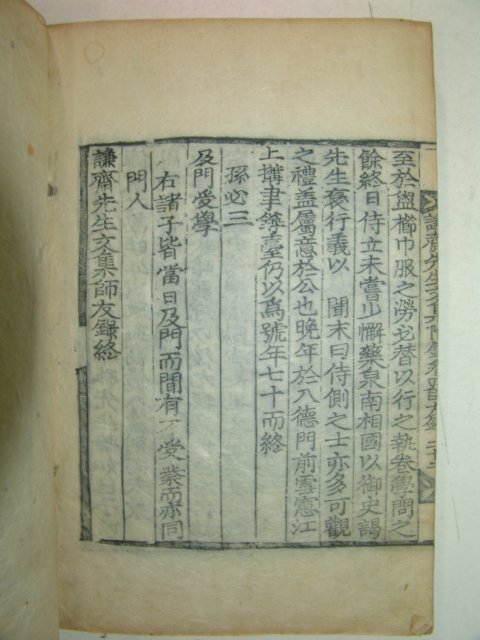 謙齋先生文集附錄卷
至於盥櫛巾服之勞必替以行之執卷學問之
餘終日侍立未嘗少懈藥泉南相國以御史謁
先生褒行義以 聞末曰侍側之士亦多可觀
之禮盖屬意於公也晚年於入德門前雪窓江
上搆聿簃臺仍以爲號年七十而終
孫必三
及門受學
右諸子皆當日及門而間有不受業而亦同
門人
謙齋先生文集師友錄終